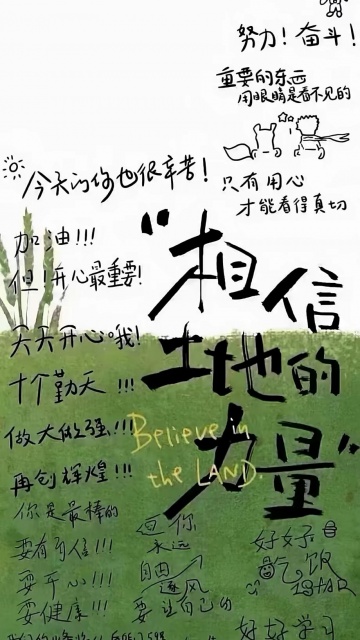 努力！奋斗！
重要的东西
用眼睛是看不见的
只有用心
才能看得真切
今天的你也很辛苦！
"相信
土地的
力量"
Believe in
the LAND.
加油!!!
但！开心最重要!
天天开心哦!
十个勤天!!!
做大做强!!!
再创辉煌!!!
你是最棒的
要有自信!!!
要开心!!!
要健康!!!
你
永远
自由
逐风
要
自己的
好好
吃饭
好好学习